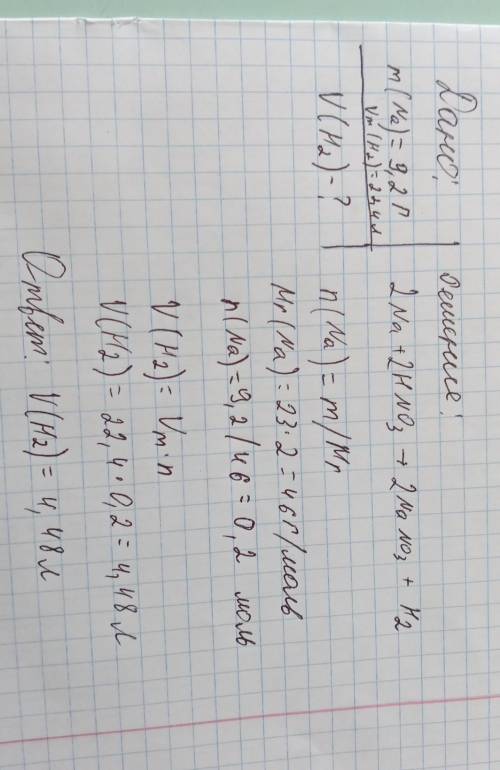 Дано:
m(Na)=9,2 г
Vm(H2)=22,4 л
V(H2)-?
Решение:
2Na+2HNO3→2NaNO3+H2
n(Na)=m/Mr
Mr(Na)=23·2=46 г/моль
n(Na)=9,2/46=0,2 моль
V(H2)=Vm·n
V(H2)=22,4·0,2=4,48 л
Ответ: V(H2)=4,48 л